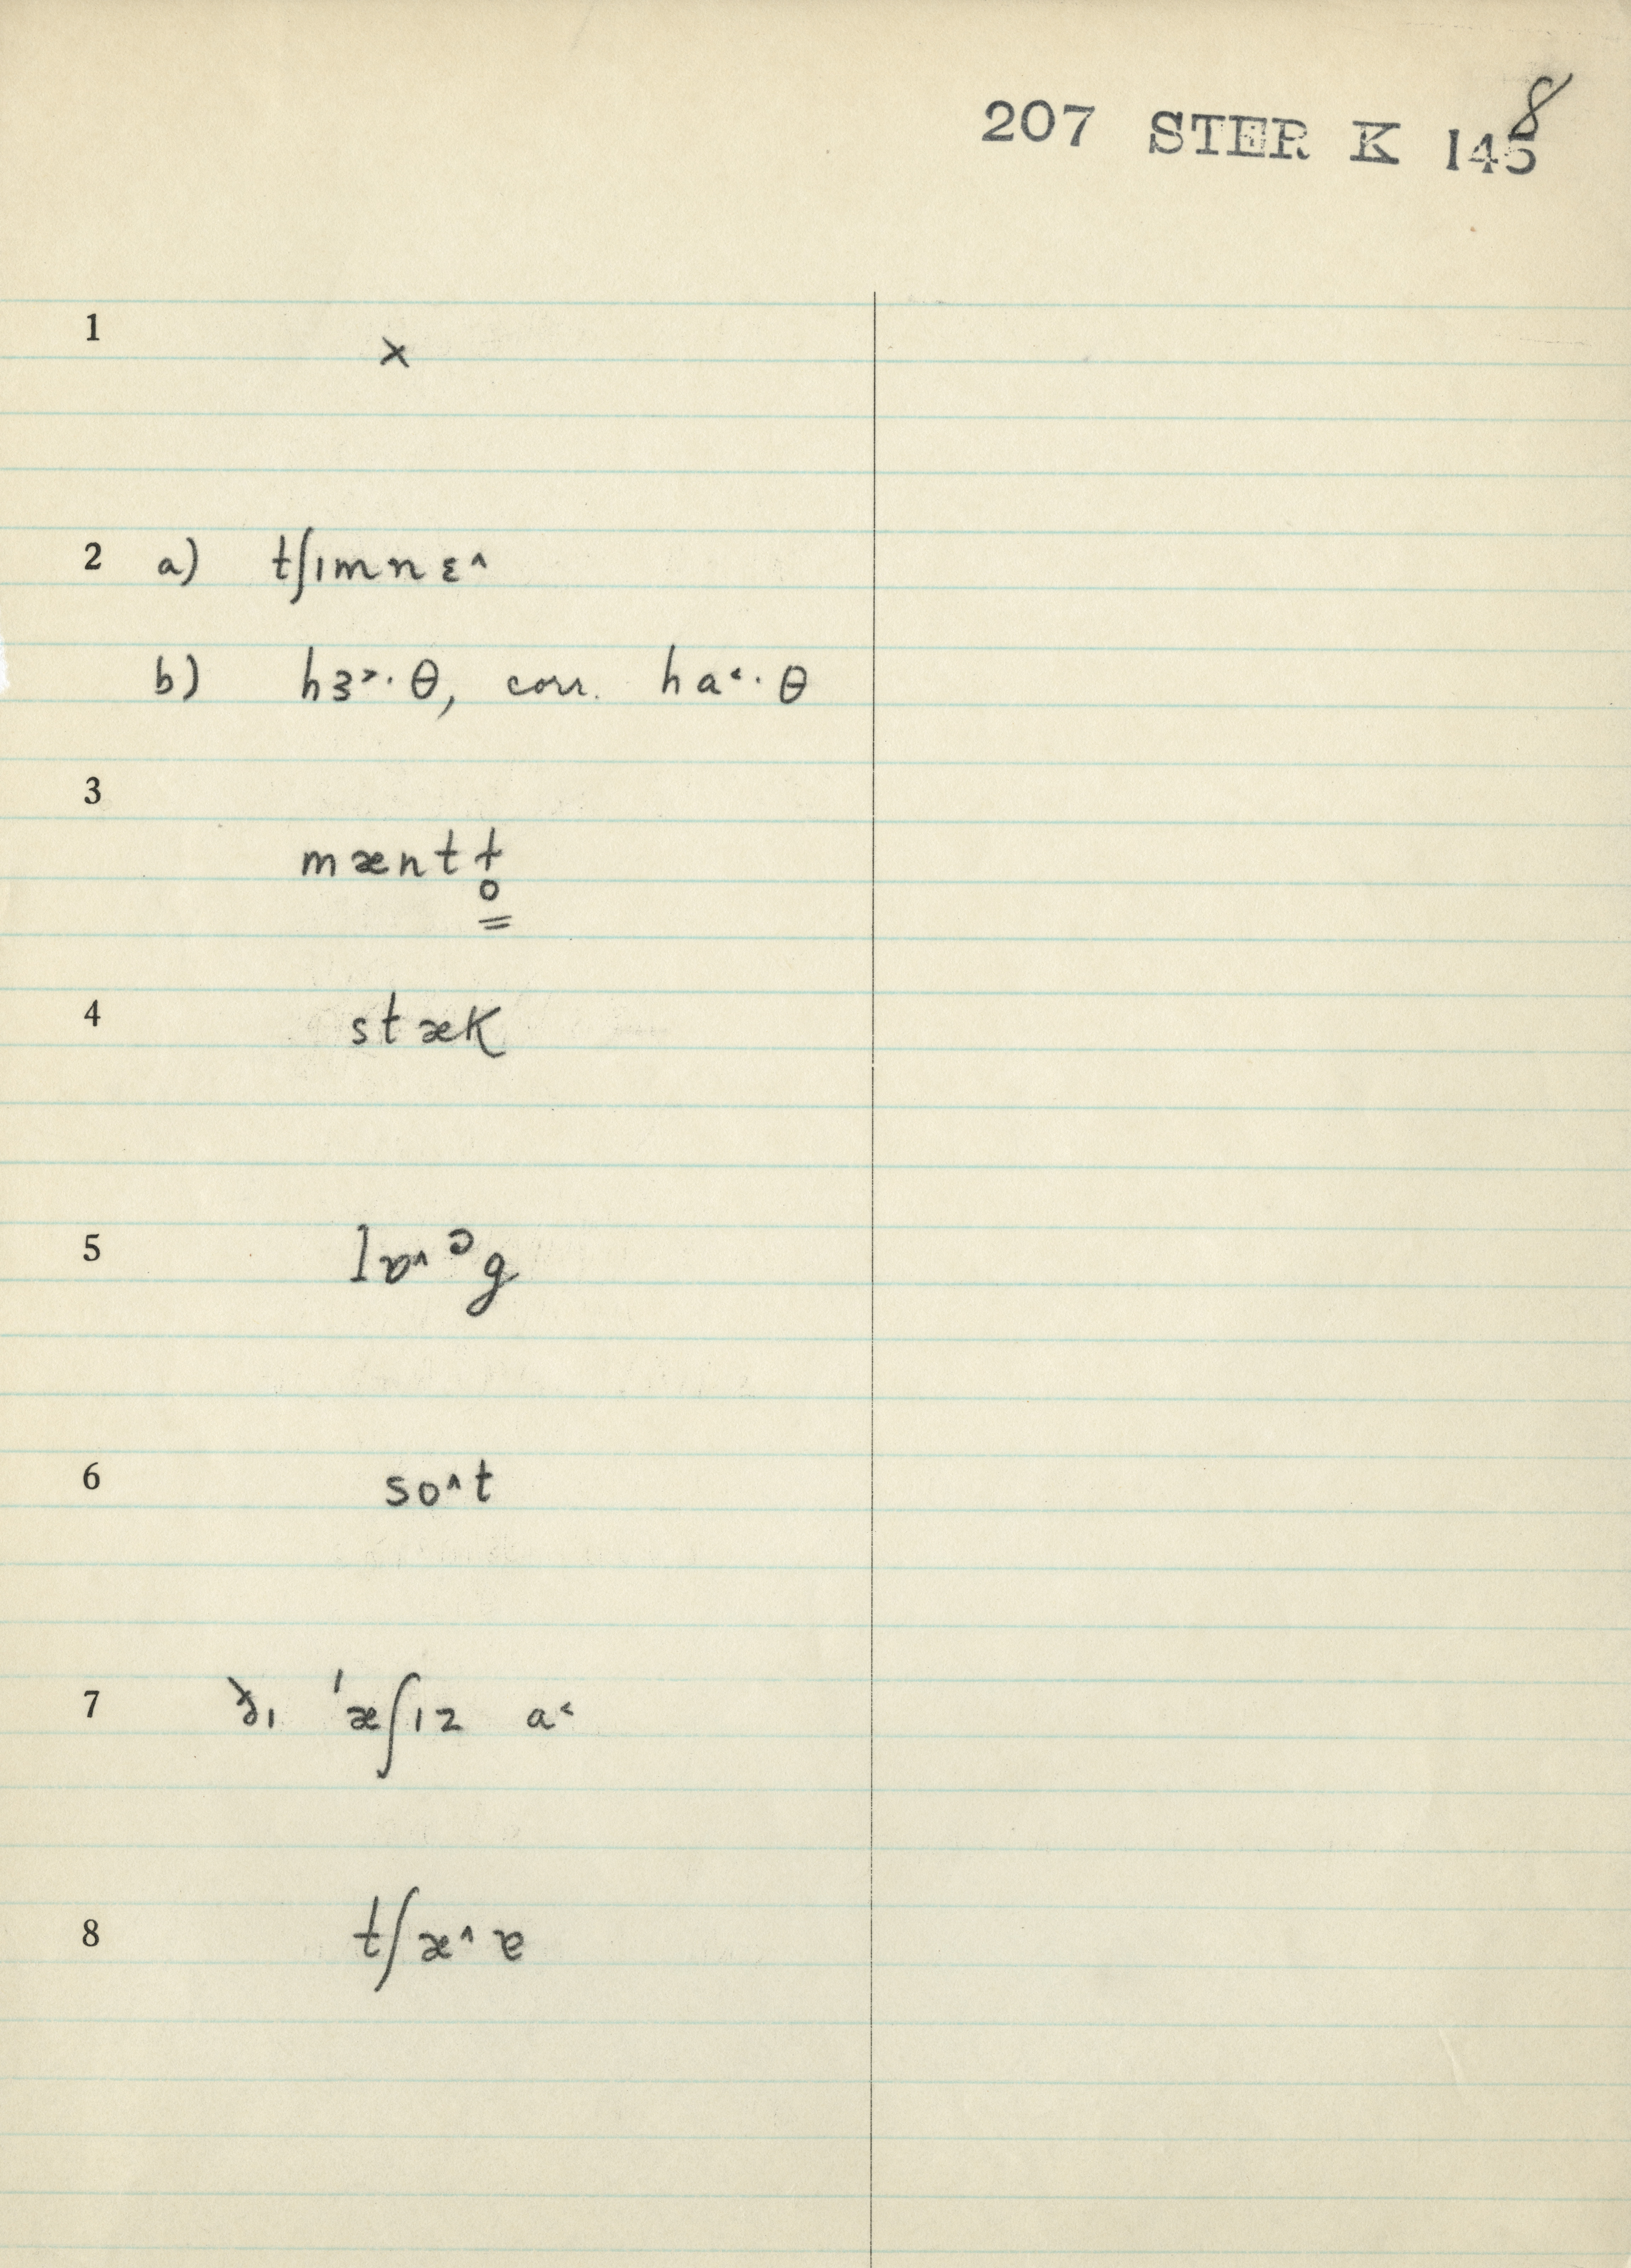 207 STER K 145 8
1 ×
2 a) tʃımnɛ^
b) hɜ˃·θ, corr. ha˂·θ
3
mæntɫ̥
4 stæK
5 lɒ^ᵓg
6 so^t
7 ðı 'æʃız a˂
8 tʃæ^ɐ